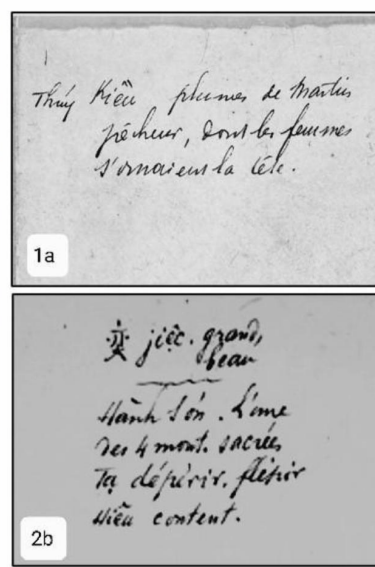 Thúy Kiều plumes de Martin
pêcheur, dont les femmes
s'ornaient la tête.
1a
jiệc. grand,
beau
Hành Sơn. L'une
des 4 mont. sacrées
Tạ dépérir, flétrir
Hiêu content.
2b